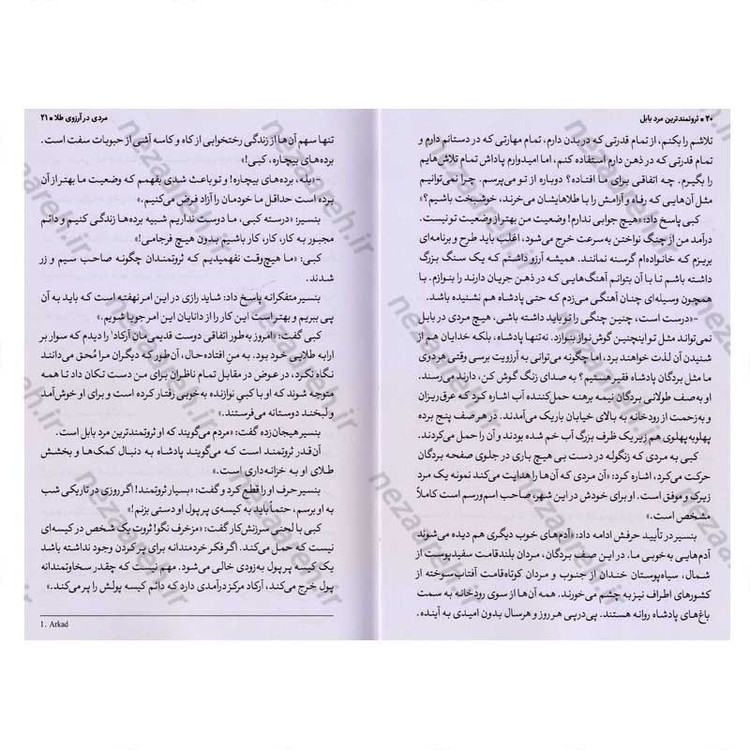 ۲۰ • ثروتمندترین مرد بابل
تلاشم را بکنم، از تمام قدرتی که در بدن دارم، تمام مهارتی که در دستانم دارم و
تمام قدرتی که در ذهن دارم استفاده کنم، اما امیدوارم پاداش تمام تلاش‌هایم
را بگیرم. چه اتفاقی برای ما افتاده؟ دوباره از تو می‌پرسم. چرا نمی‌توانیم
مثل آن‌هایی که رفاه و آرامش را با طلاهایشان می‌خرند، خوشبخت باشیم؟»
کبی پاسخ داد: «هیچ جوابی ندارم! وضعیت من بهتر از وضعیت تو نیست.
درآمد من از چنگ نواختن به‌سرعت خرج می‌شود، اغلب باید طرح و برنامه‌ای
بریزم که خانواده‌ام گرسنه نمانند. همیشه آرزو داشتم که یک سنگ بزرگ
داشته باشم تا با آن بتوانم آهنگ‌هایی که در ذهن جریان دارند را بنوازم. با
همچون وسیله‌ای چنان آهنگی می‌زدم که حتی پادشاه هم نشنیده باشد.
-«درست است، چنین چنگی را تو باید داشته باشی، هیچ مردی در بابل
نمی‌تواند مثل تو اینچنین گوش‌نواز بنوازد. نه‌تنها پادشاه، بلکه خدایان هم از
شنیدن آن لذت خواهند برد، اما چگونه می‌توانی به آرزویت برسی وقتی هردوی
ما مثل بردگان پادشاه فقیر هستیم؟ به صدای زنگ گوش کن، دارند می‌رسند.
او به‌صف طولانی بردگان نیمه برهنه حمل‌کننده آب اشاره کرد که عرق‌ریزان
و به‌زحمت از رودخانه به بالای خیابان باریک می‌آمدند. در هر صف پنج برده
پهلوبه‌پهلوی هم زیر یک ظرف بزرگ آب خم شده بودند و آن را حمل می‌کردند.
کبی به مردی که زنگوله در دست بی هیچ باری در جلوی صفحه بردگان
حرکت می‌کرد، اشاره کرد: «آن مردی که آن‌ها را هدایت می‌کند نمونه یک مرد
زیرک و موفق است. او برای خودش در این شهر، صاحب اسم‌ورسم است کاملاً
مشخص است.»
بنسیر در تأیید حرفش ادامه داد: «آدم‌های خوب دیگری هم دیده می‌شوند
آدم‌هایی به‌خوبی ما. در این صف بردگان، مردان بلندقامت سفیدپوست از
شمال، سیاه‌پوستان خندان از جنوب و مردان کوتاه‌قامت آفتاب‌سوخته از
کشورهای اطراف نیز به چشم می‌خورند. همه آن‌ها از سوی رودخانه به سمت
باغ‌های پادشاه روانه هستند. پی‌درپی هر روز و هرسال بدون امیدی به آینده.
مردی در آرزوی طلا • ۲۱
تنها سهم آن‌ها از زندگی رختخوابی از کاه و کاسه آشی از حبوبات سفت است.
برده‌های بیچاره، کبی!»
-«بله، برده‌های بیچاره! و تو باعث شدی بفهمم که وضعیت ما بهتر از آن
برده است حداقل ما خودمان را آزاد فرض می‌کنیم.»
بنسیر: «درسته کبی، ما دوست نداریم شبیه برده‌ها زندگی کنیم و دائم
مجبور به کار، کار، کار باشیم بدون هیچ فرجامی!»
کبی: «ما هیچ‌وقت نفهمیدیم که ثروتمندان چگونه صاحب سیم و زر
شدند.
بنسیر متفکرانه پاسخ داد: شاید رازی در این امر نهفته است که باید به آن
پی ببریم و بهتر است این کار را از دانایان این امر جویا شویم.»
کبی گفت: «امروز به‌طور اتفاقی دوست قدیمی‌مان آرکاد¹ را دیدم که سوار بر
ارابه طلایی خود بود. به من افتاده حال، آن‌طور که دیگران مرا مُحق می‌دانند
نگاه نکرد، در عوض در مقابل تمام ناظران برای من دست تکان داد تا همه
متوجه شوند که او با کبیِ نوازنده به‌خوبی رفتار کرده است و برای او خوش‌آمد
و لبخند دوستانه می‌فرستند.»
بنسیر هیجان‌زده گفت: «مردم می‌گویند که او ثروتمندترین مرد بابل است.
آن‌قدر ثروتمند است که می‌گویند پادشاه به دنبال کمک‌ها و بخشش
طلای او به خزانه‌داری است.»
بنسیر حرف او را قطع کرد و گفت: «بسیار ثروتمند! اگر روزی در تاریکی شب
به او برسم، حتماً باید به کیسه‌ی پر پول او دستی بزنم!»
کبی با لحنی سرزنش‌کار گفت: «مزخرف نگو! ثروت یک شخص در کیسه‌ای
نیست که حمل می‌کند. اگر فکر خردمندانه برای پر کردن وجود نداشته باشد
یک کیسه پر پول به‌زودی خالی می‌شود. مهم نیست که چقدر سخاوتمندانه
پول خرج می‌کند، آرکاد مرکز درآمدی دارد که دائم کیسه پولش را پر می‌کند.»
1. Arkad
nezaareh.ir